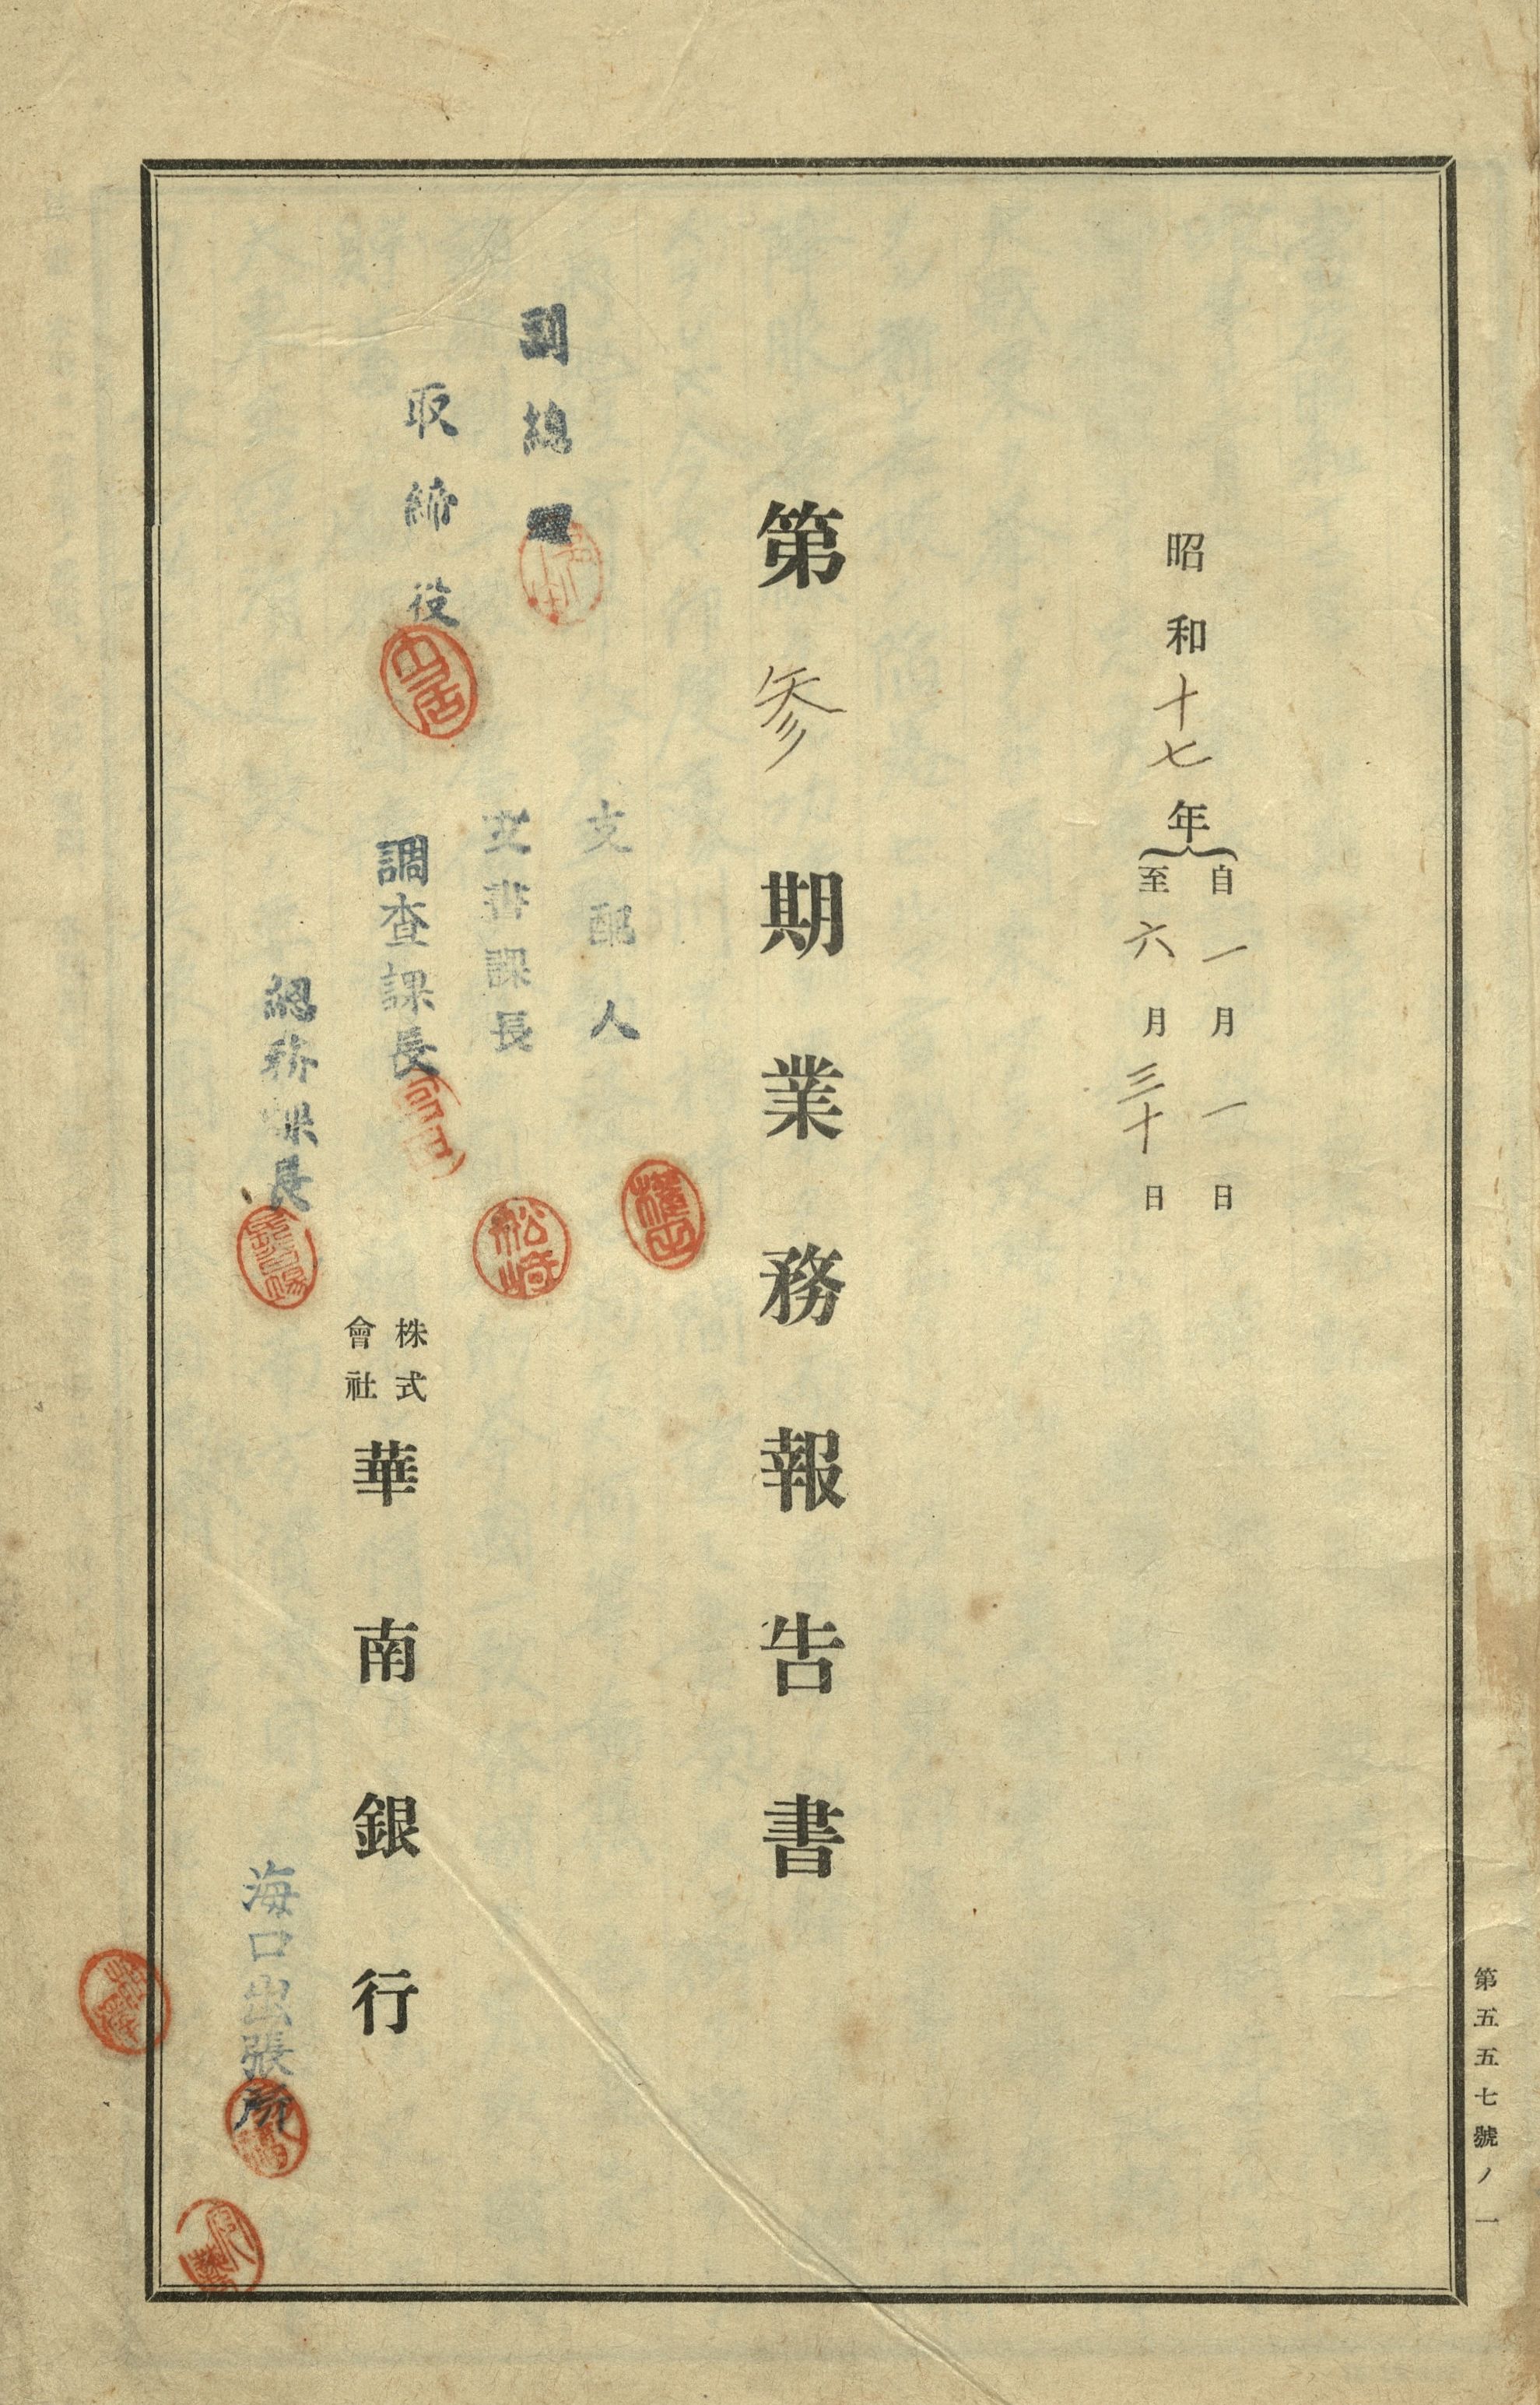 昭和十七年
自一月一日
至六月三十日
第参期業務報告書
副總理
取締役
支配人
文書課長
調査課長
總務課長
松崎
株式
會社
華南銀行
海口出張所
第五五七號ノ一